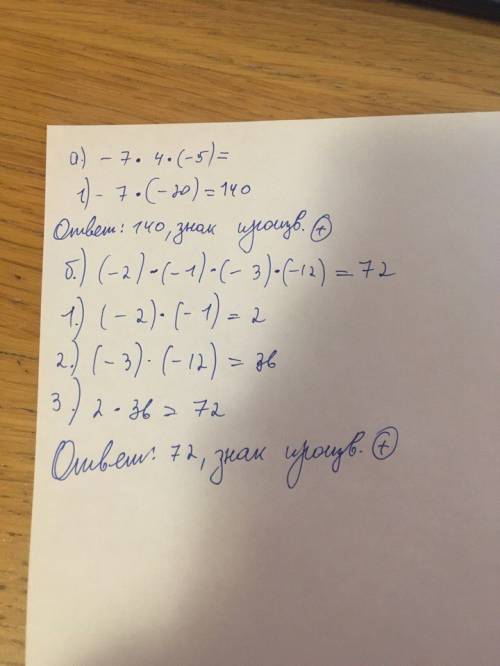 а.) - 7 · 4 · (-5) =
1) - 7 · (-20) = 140
Ответ: 140, знак произв. +
б.) (-2) · (-1) · (-3) · (-12) = 72
1.) (-2) · (-1) = 2
2.) (-3) · (-12) = 36
3.) 2 · 36 = 72
Ответ: 72, знак произв. +